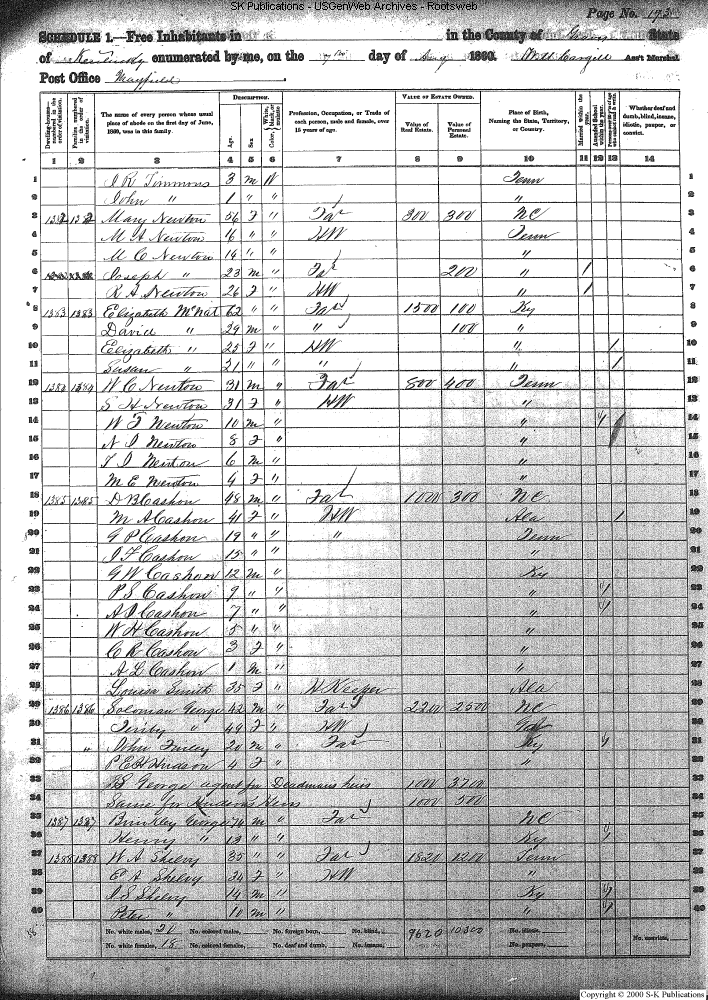 SK Publications - USGenWeb Archives - Rootsweb
Page No. 193
SCHEDULE 1.—Free Inhabitants in in the County of State
of Kentucky enumerated by me, on the day of Aug 1860. Ass't Marshal.
Post Office Mayfield
Dwelling-houses—numbered in the order of visitation. Families numbered in the order of visitation. The name of every person whose usual place of abode on the first day of June, 1860, was in this family. DESCRIPTION. Age. Sex. Color, White, black, or mulatto. Profession, Occupation, or Trade of each person, male and female, over 15 years of age. VALUE OF ESTATE OWNED. Value of Real Estate. Value of Personal Estate. Place of Birth, Naming the State, Territory, or Country. Married within the year. Attended School within the year. Whether deaf and dumb, blind, insane, idiotic, pauper, or convict.
1 2 3 4 5 6 7 8 9 10 11 12 13 14
1 J R Timmons 3 m W Tenn 1
2 John " 1 " " " 2
3 1382 1382 Mary Newton 56 F " Far 300 300 NC 3
4 M A Newton 16 " " HW Tenn 4
5 M C Newton 14 " " " 5
6 Joseph " 23 m " Far 200 " / 6
7 R A Newton 26 F " HW " / 7
8 1383 1383 Elizabeth McNat 62 " " Far 1500 100 Ky 8
9 David " 29 m " " 100 " 9
10 Elizabeth " 25 F " HW " / 10
11 Susan " 21 " " " " / 11
12 1384 1384 W C Newton 31 m " Far 800 400 Tenn 12
13 S H Newton 31 F " HW " 13
14 W F Newton 10 m " " / 14
15 N J Newton 8 F " 15
16 T J Newton 6 m " " 16
17 M E Newton 4 F " " 17
18 1385 1385 D B Cashon 48 m " Far 1000 300 NC 18
19 M A Cashon 41 F " HW Ala / 19
20 G P Cashon 19 " " " Tenn 20
21 J F Cashon 15 " " " 21
22 G W Cashon 12 m " Ky 22
23 P S Cashon 9 " " " / 23
24 A J Cashon 7 " " " / 24
25 W H Cashon 5 " " " 25
26 C R Cashon 3 F " " 26
27 A L Cashon 1 m " " 27
28 Louisa Smith 35 F " H Keeper Ala 28
29 1386 1386 Soloman George 42 m " Far 2200 2500 NC 29
30 " 49 F " HW 30
31 " John Finley 20 m " Far Ky / 31
32 P E H Hudson 4 F " " 32
33 S George agent for Deadmans heirs 1000 3700 33
34 Same for Hudsons Heirs 1000 500 34
35 1387 1387 Brinkley George 74 m " Far NC 35
36 Henry " 13 " " Ky / 36
37 1388 1388 W A Shelvy 35 " " Far 1820 1200 Tenn 37
38 E A Shelvy 34 F " HW " 38
39 J S Shelvy 14 m " Ky / 39
40 Peter " 10 m " " / 40
No. white males, 20 No. colored males, No. foreign born, No. blind, 9620 10300 No. idiotic, No. convicts,
No. white females, 18 No. colored females, No. deaf and dumb, No. insane, No. paupers,
Copyright © 2000 S-K Publications